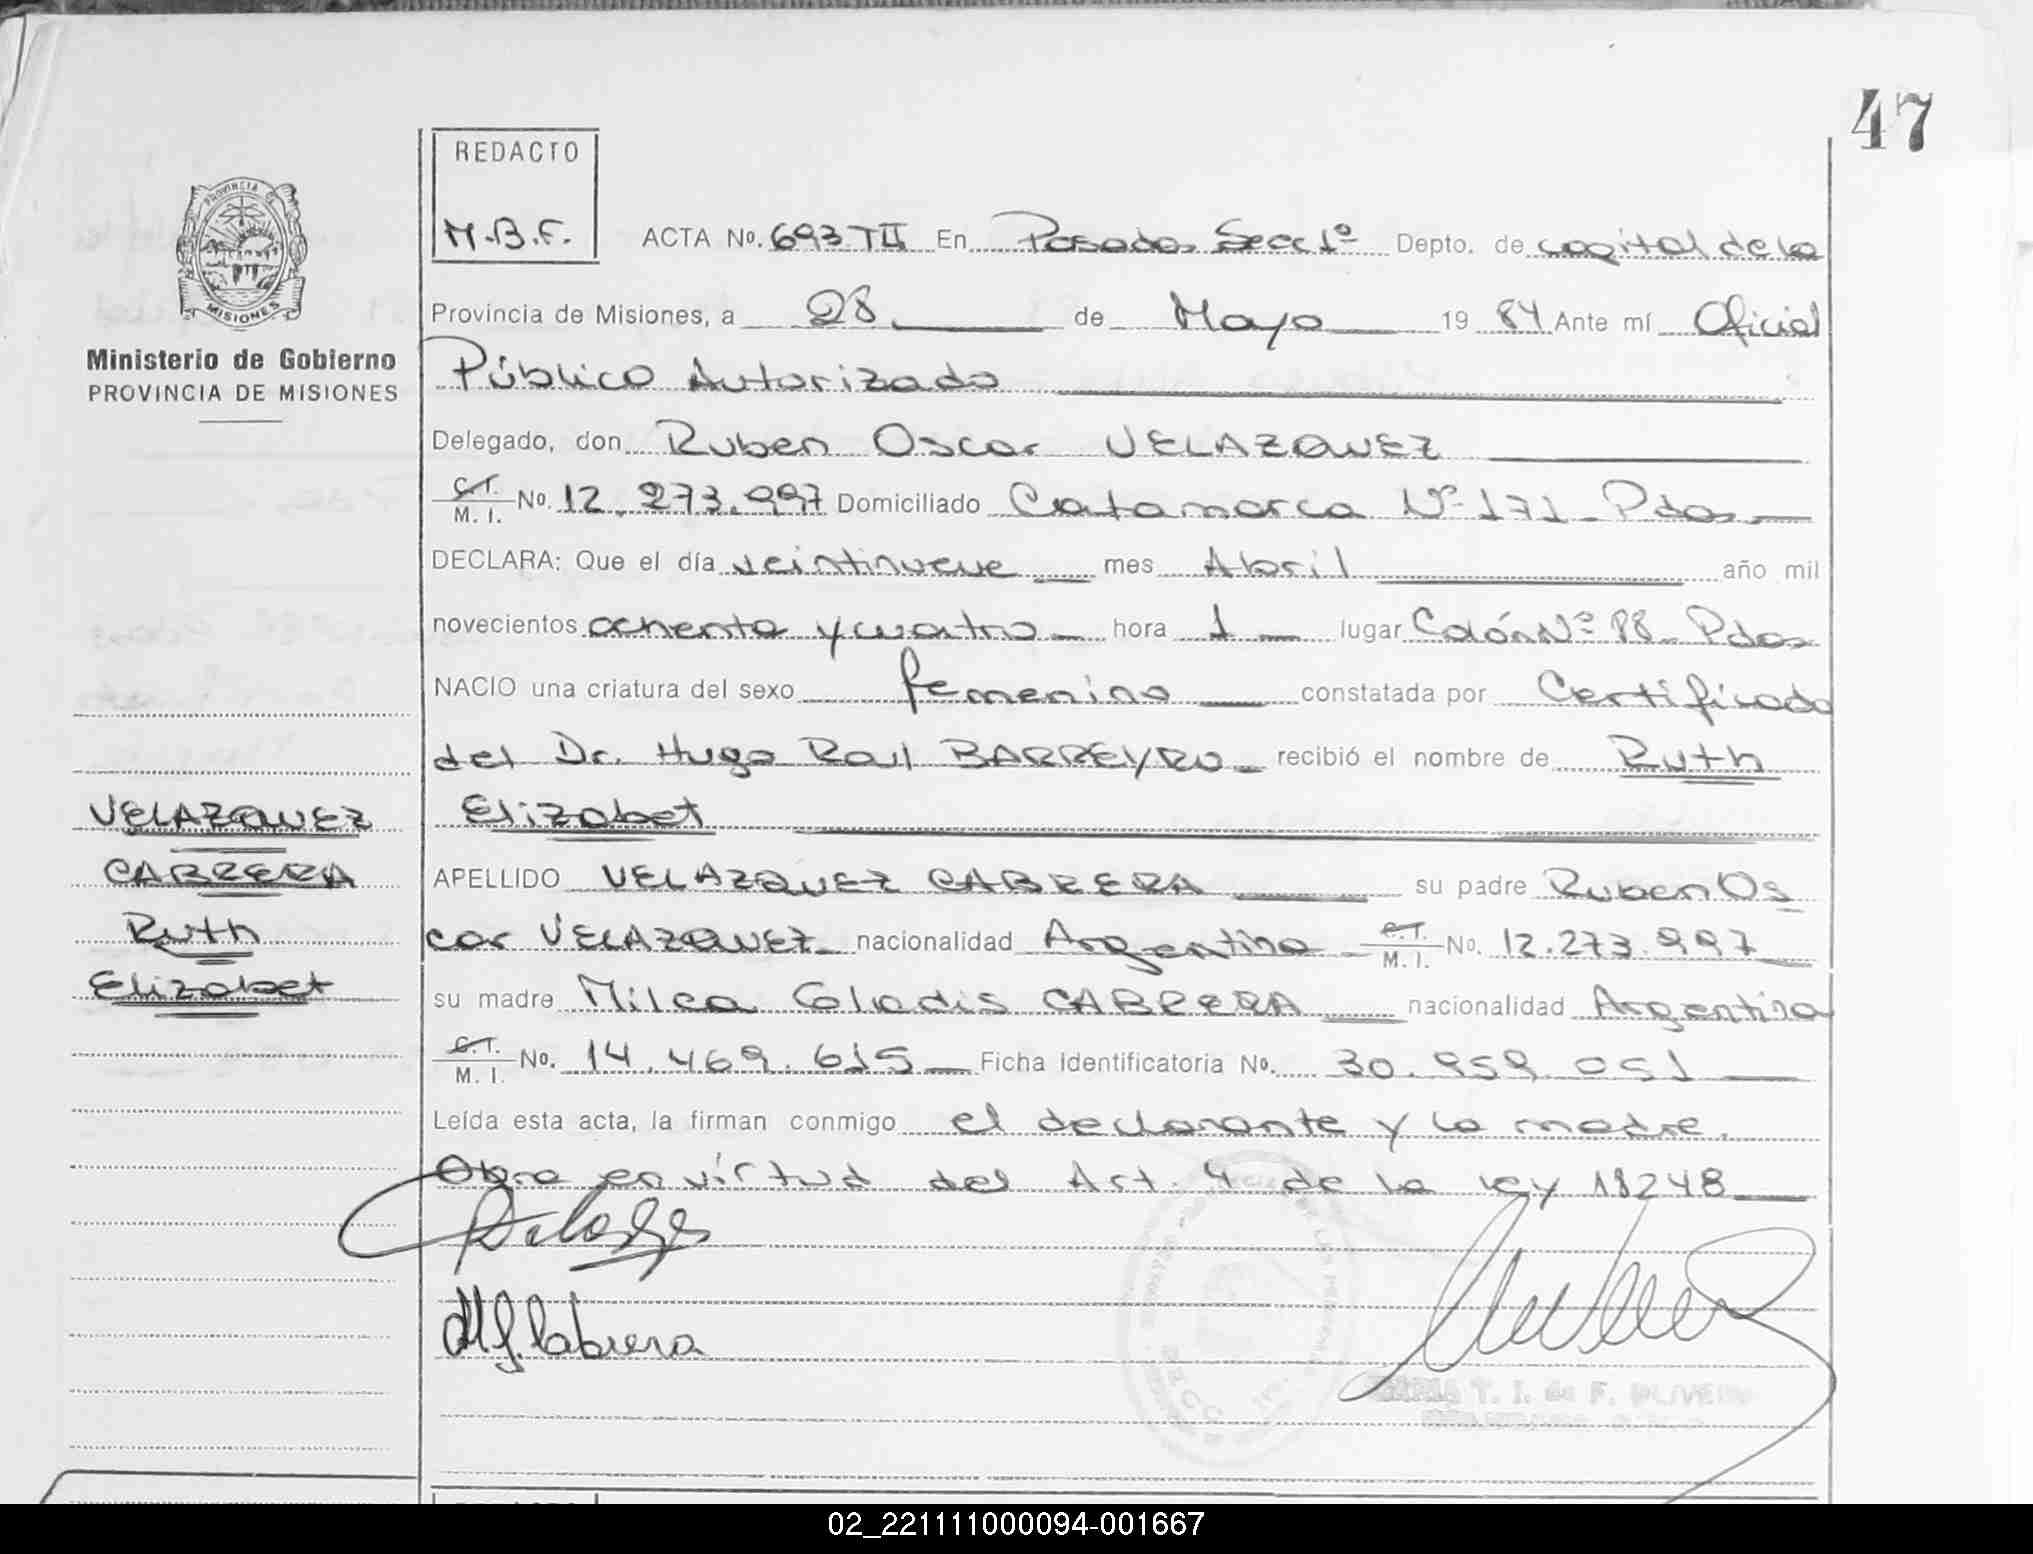 47
REDACTO
M.B.F.
ACTA No. 693 TII En Posadas Secc 1º Depto. de capital de la
PROVINCIA DE
MISIONES
Ministerio de Gobierno
PROVINCIA DE MISIONES
Provincia de Misiones, a 28 de Mayo 19 84 Ante mí Oficial
Público Autorizado
Delegado, don Ruben Oscar VELAZQUEZ
C.I. M. I. No. 12.273.997 Domiciliado Catamarca Nº 171 - Pdas
DECLARA: Que el día veintinueve mes Abril año mil
novecientos ochenta y cuatro hora 1 lugar Colón Nº 88 - Pdas
NACIO una criatura del sexo femenino constatada por Certificado
del Dr. Hugo Raul BARREYRO recibió el nombre de Ruth
Elizabet
APELLIDO VELAZQUEZ CABRERA su padre Ruben Os
car VELAZQUEZ nacionalidad Argentina C.I. M. I. No. 12.273.997
su madre Milca Gladis CABRERA nacionalidad Argentina
C.I. M. I. No. 14.469.615 Ficha Identificatoria No. 30.959.051
Leída esta acta, la firman conmigo el declarante y la madre.
Obra en virtud del Art. 4 de la ley 18248
VELAZQUEZ
CABRERA
Ruth
Elizabet
M G. Cabrera
T. I. de F. OLIVEIRA
02_221111000094-001667